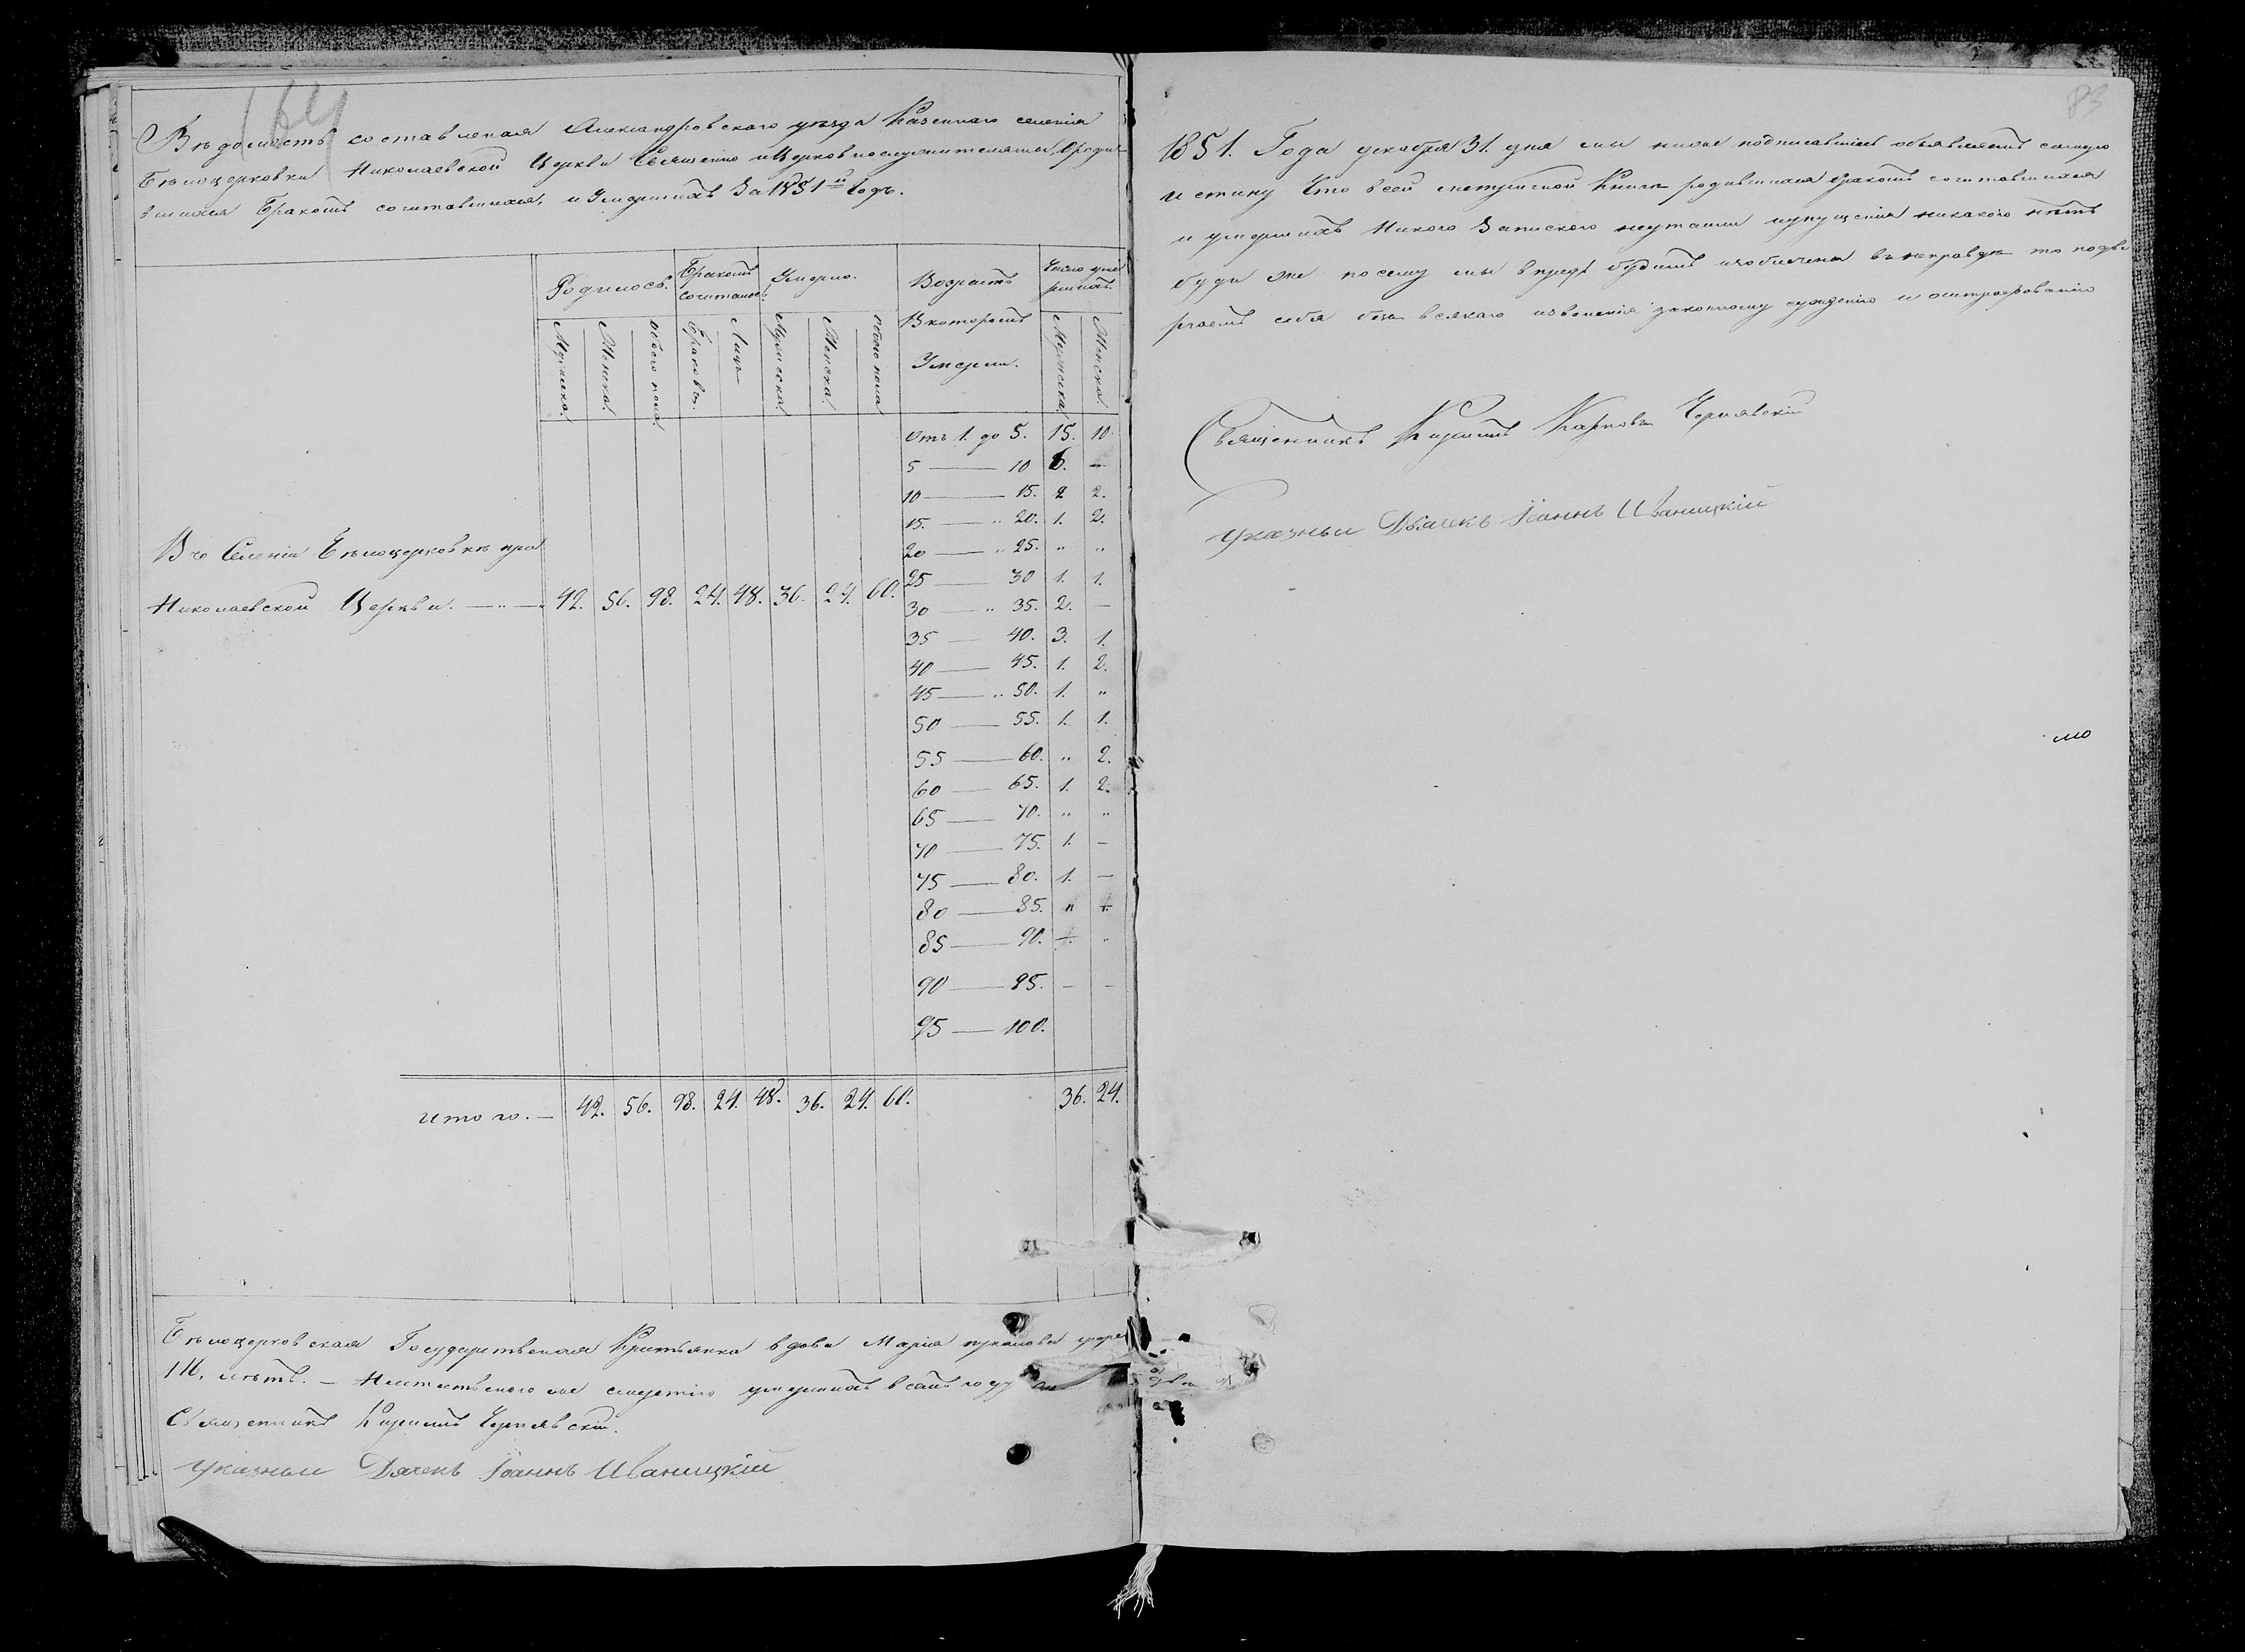 164
Вѣдомость составленая Александровскаго уѣзда Казеннаго селенія
Бѣлоцерковки Николаевской Церкви Священно и Церковнослужителями, о роди-
вшихся Бракомъ сочитавшихся, и Умершихъ За 1851й Годъ.
Родилось. Бракомъ сочиталось. Умерло. Возрастъ В которомъ Умерли. Число умершихъ.
Мужеска. Женска. Обоего пола. Браковъ. Лицъ Мужеска Женска. Обоего пола Мужеска Женска.
Отъ 1. до 5. 15. 10.
5 — 10 6. —
10 — 15. 2 2.
15. — " 20. 1. 2.
20 — " 25. " "
25 — 30 1. 1.
30 — " 35. 2. —
35 — 40. 3. 1.
40 — 45. 1. 2.
45 — " 50. 1. "
50 — 55. 1. 1.
55 — 60. " 2.
60 — 65. 1. 2.
65 — 70. " "
70 — 75. 1. —
75 — 80. 1. —
80 — 85. "
85 — 90.
90 — 95. — —
95 — 100.
Въ Селеніи Бѣлоцерковкѣ при
Николаевской Церкви. — " — 42. 56. 98. 24. 48. 36. 24. 60.
Итого. — 42. 56. 98. 24. 48. 36. 24. 60. 36. 24.
Бѣлоцерковская Государственая Крестьянка вдова Марія
116, летъ. — смертію умершихъ в семъ году
Священникъ Кирилъ Чернявскій.
Указный Дячекъ Іоаннъ Иваницкій
83
1851. Года декабря 31. дня мы ниже подписавшіясь объявляемъ самую
истину Что в сей метрической Книге родившихся бракомъ сочитавшихся
и умершихъ Никого Записаного неутаили и упущенія никакого нѣтъ
буди же по сему мы впредь будемъ изобличены въ неправде то подве-
ргаемъ себя безъ всякаго извиненія законному суждению и оштрафованію
Священникъ Кирилъ Карповъ Чернявскій
Указный Дьячекъ Іоаннъ Иваницкій
мо